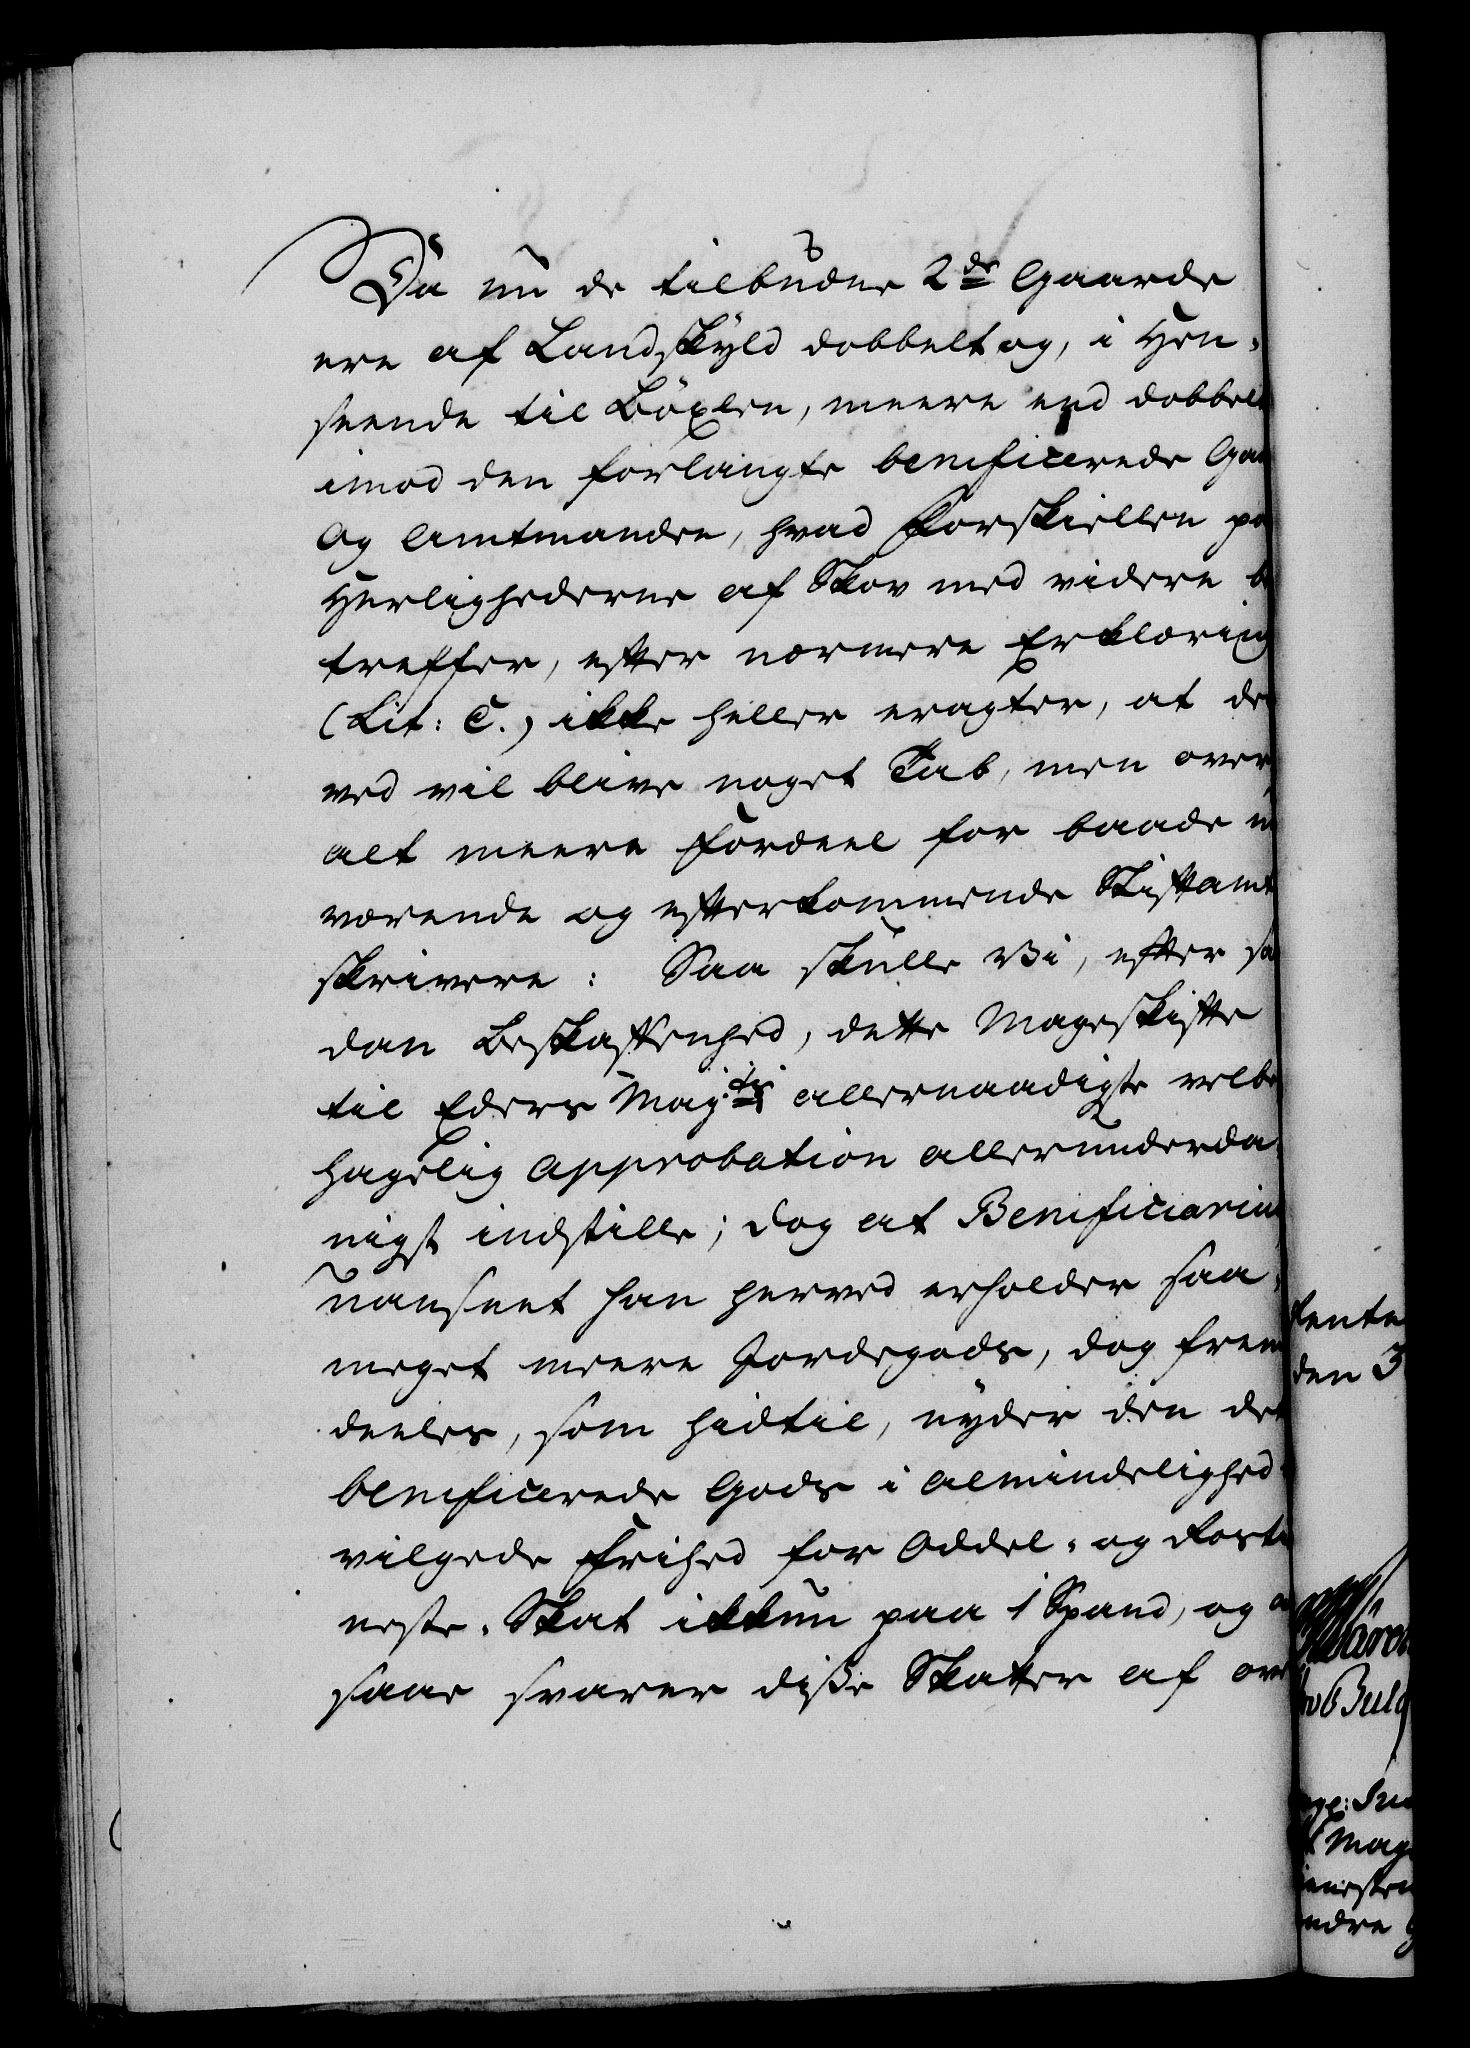 Da nu de tilbudne 2de Gaarde
ere af Landskyld dobbelt og, i Hen-
seende til Böxlen, meere end dobbelt
imod den forlangte beneficerede Gaa
Og Amtmanden, hvad Forskiellen paa
Herlighederne af Skov med videre be
treffer, efter nærmere Erklæring
(Lit: C.) ikke heller eragter, at der
ved vil blive noget Tab, men over,
alt meere Fordeel for baade nu
værende og efterkommende Stiftamt
skrivere: Saa skulle Vi, efter saa
dan Beskaffenhed, dette Mageskifte
til Eders Maj:ts allernaadigste velbe
hagelig Approbation allerunderda-
nigst indstille; dog at Beneficiarius
uanseet han herved erholder saa,
meget meere Jordegods, dog frem
deeles, som hidtil, nyder den det
beneficerede Gods i Almindelighed
vilgede Frihed for Oddel- og Forte
neste-Skat ikkun paa 1 Spand, og
saar svarer disse Skatter af ove
fente
den 3
Mag